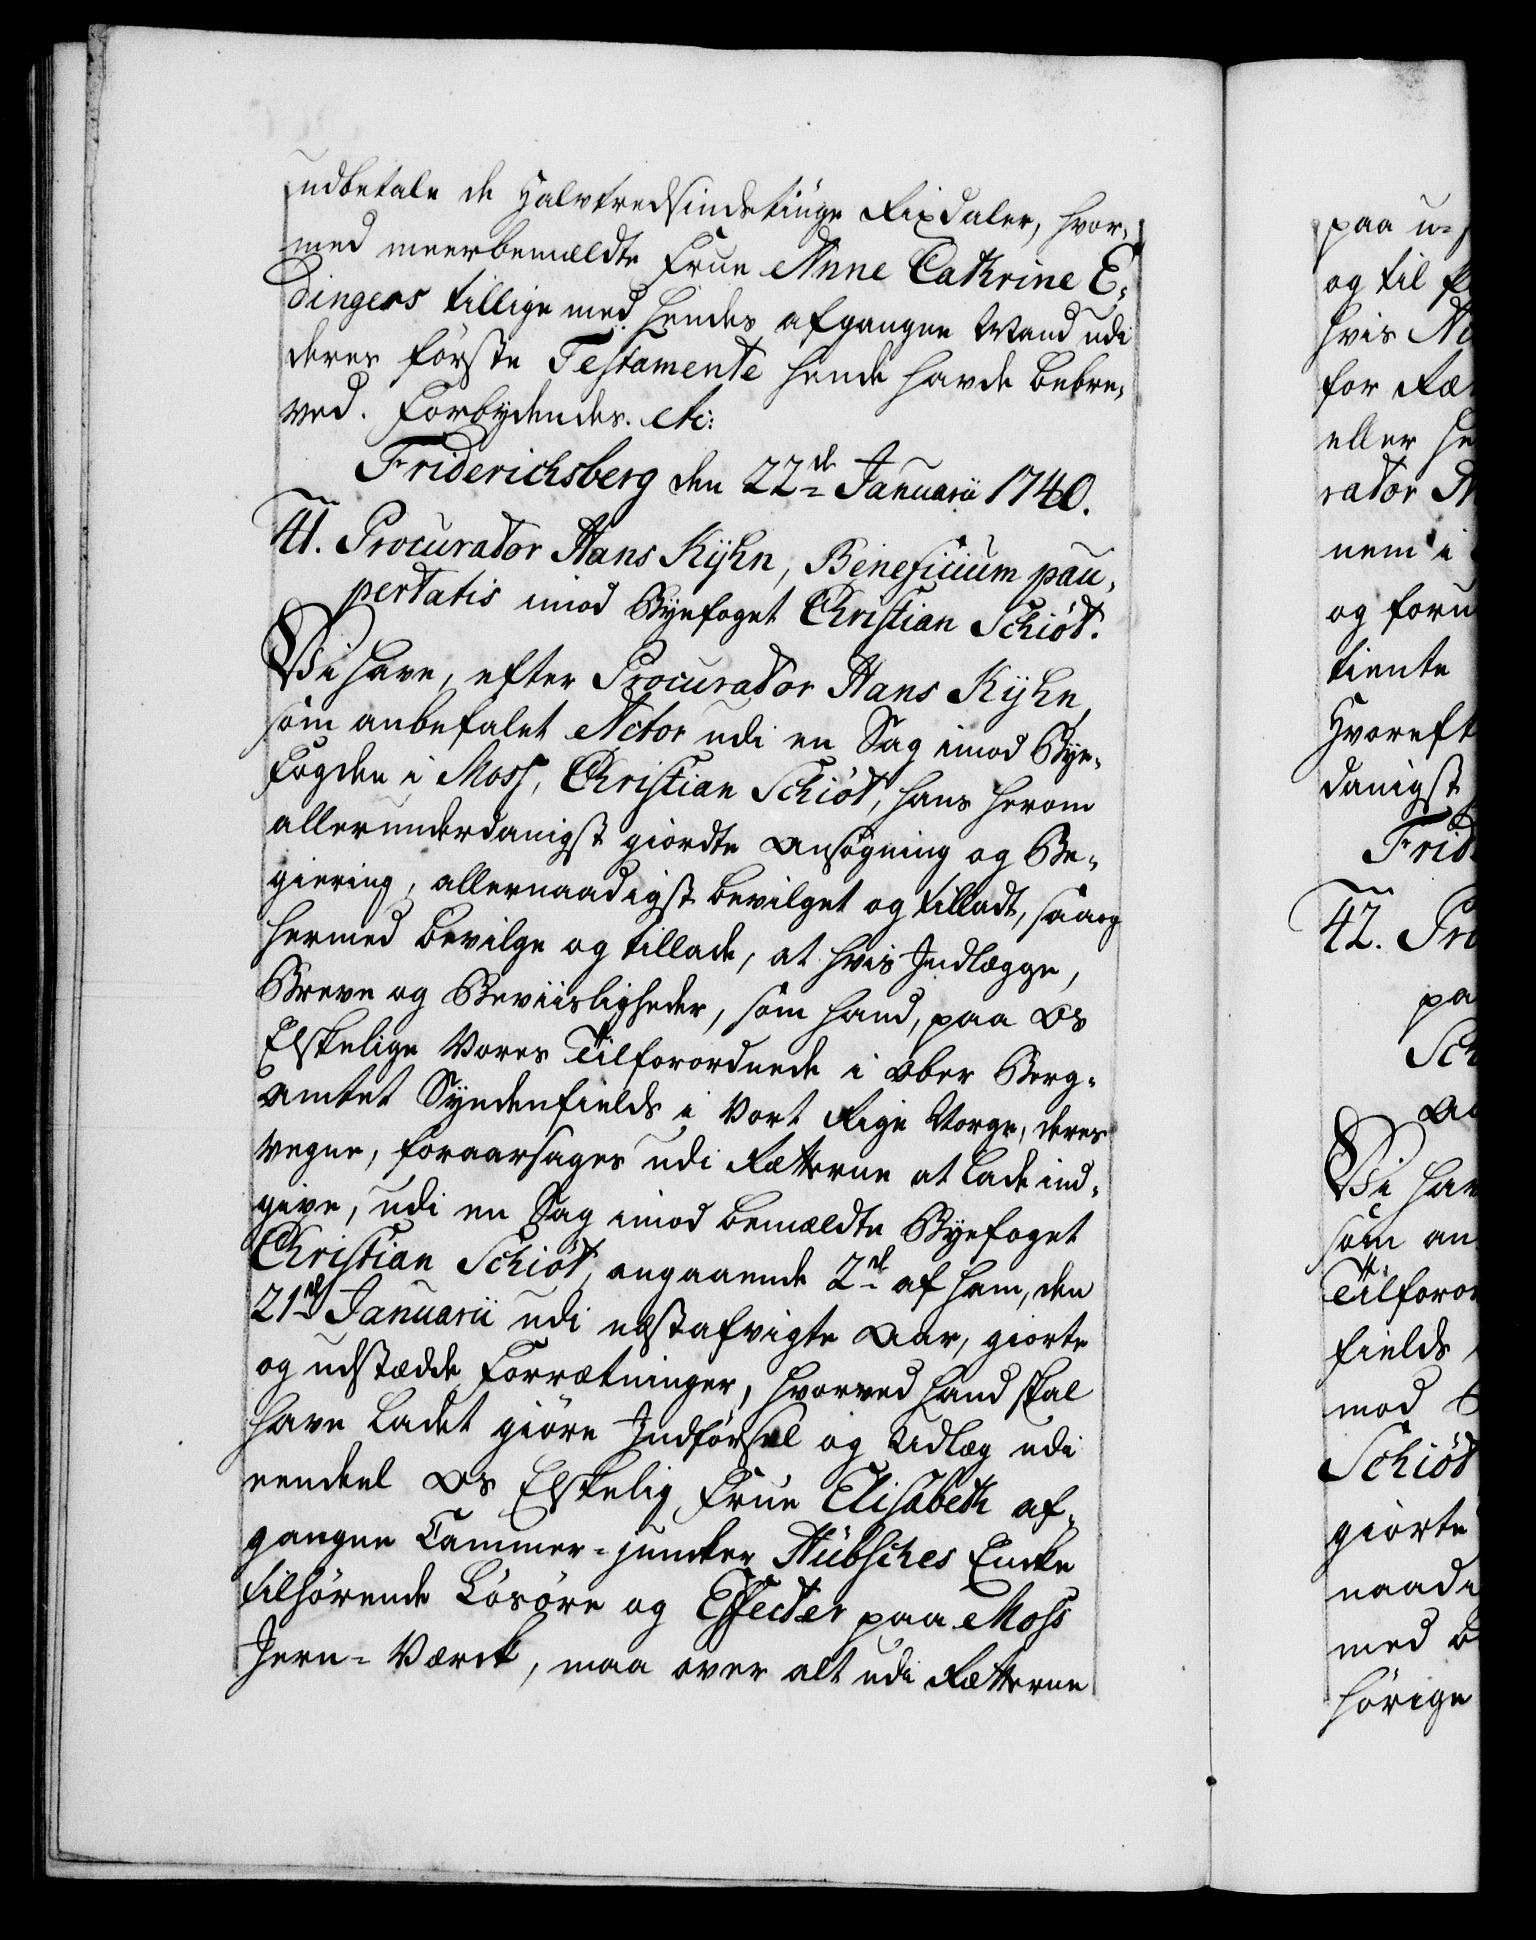 udbetale de Halvtredsindstiuge Rixdaler, hvor¬
med meerbemældte Frue Anne Cathrine E¬
dingers tillige med hendes afgangne Mand udi
deres förste Testamente hende havde bebre¬
ved. Forbydendes. etc:
Friderichsberg den 22de Januarii 1740.
41. Procurator Hans Kÿhn, Beneficium pau¬
pertatis imod Byefoget Christian Schiöt.
Vi have, efter Procurator Hans Kÿhn,
som anbefalet Actor udi en Sag imod Bye¬
fogden i Moss, Christian Schiöt, hans herom
allerunderdanigst giordte Ansögning og Be¬
giering, allernaadigst bevilget og tilladt, saa og
hermed bevilge og tillade, at hvis Indlægge,
Breve og Beviisligheder, som hand, paa Os
Elskelige Vores Tilforordnede i Ober Berg¬
Amtet Syndenfields i Vort Rige Norge, deres
vegne, foraarsages udi Rætterne at lade ind¬
give, udi en Sag imod bemældte Byefoget
Christian Schiöt, angaaende 2de af ham, den
21de Januarii udi nestafvigte Aar, giorte
og udstædde Forrætninger, hvorved hand skal
have ladet giöre Indförsel og Udlæg udi
eendeel Os Elskelig Frue Elisabeth af¬
gangne Cammer-juncker Hübsches Encke
tilhörende Lösöre og Effecter paa Moss
Jern-Værck, maa over alt udi Rætterne
paa u-
og til
hvis
for Ræ
eller he
rator
nem i
og foru
tiente
Hvoreft
danigst
Frid
42. Pro
pa
Sch
Vi hav
som an
Tilforor
fields
mod
Schiöt
giorte
naadi
med
hörige